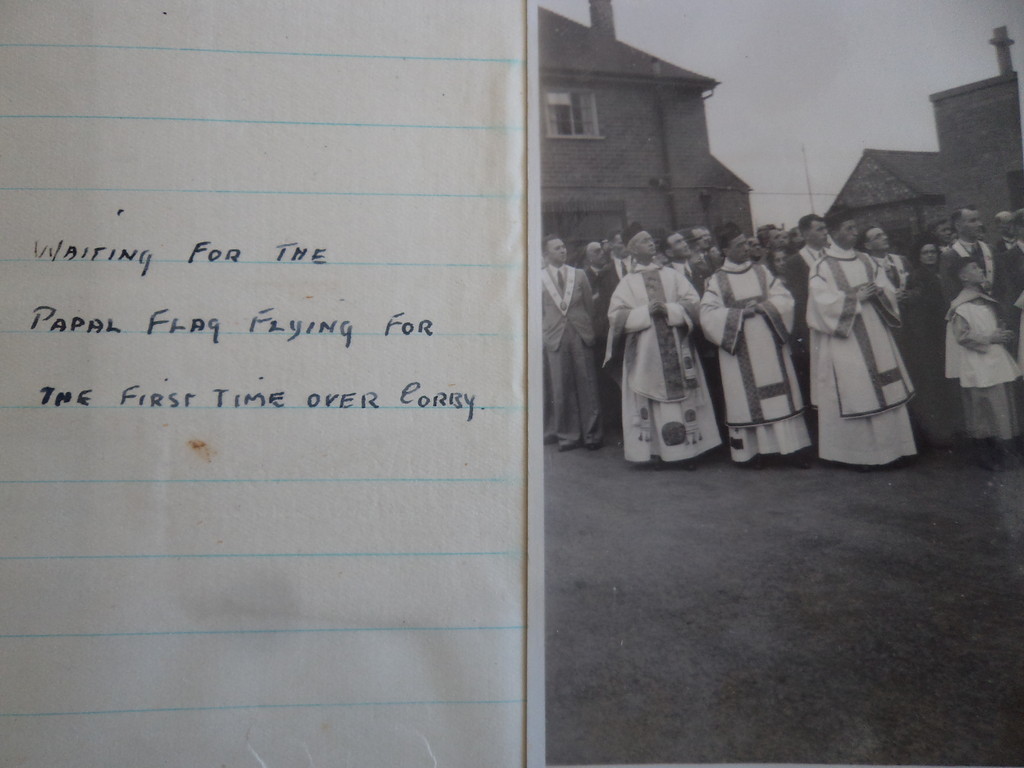 WAITING FOR THE
PAPAL FLAG FLYING FOR
THE FIRST TIME OVER CORBY.